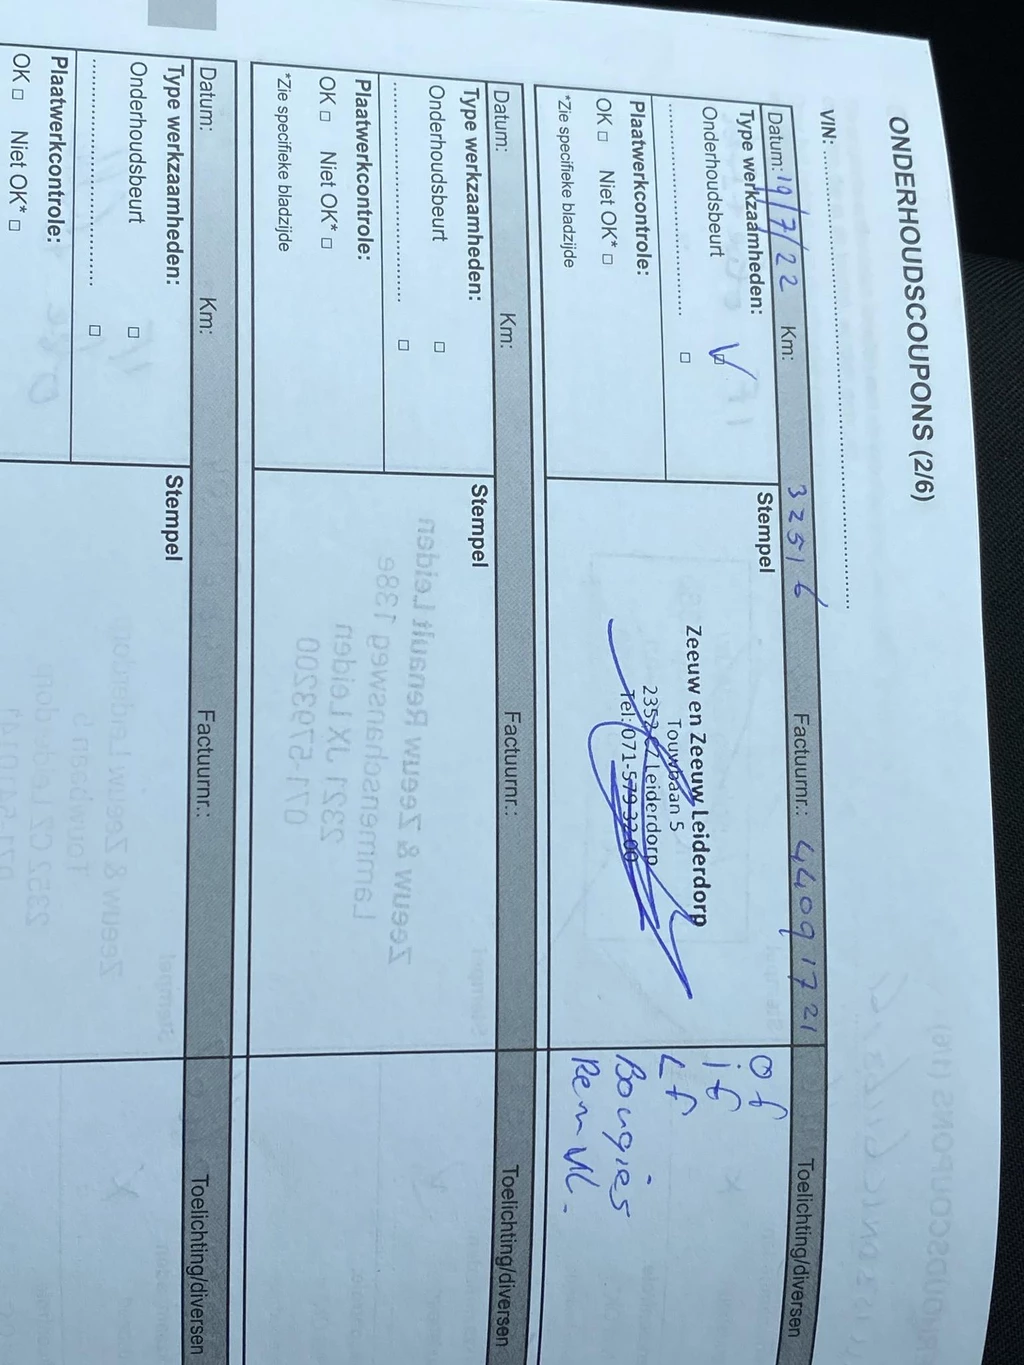 ONDERHOUDSCOUPONS (2/6)
VIN: ........................................................
Datum: 19/7/22 Km: 32516 Factuurnr.: 44091721 Toelichting/diversen
Type werkzaamheden:
Onderhoudsbeurt
Plaatwerkcontrole:
OK □ Niet OK* □
*Zie specifieke bladzijde
Stempel
Zeeuw en Zeeuw Leiderdorp
Touwbaan 5
2352 CZ Leiderdorp
Tel: 071-579 32 00
of
if
Lf
Bougies
Rem Vl.
Datum: Km: Factuurnr.: Toelichting/diversen
Type werkzaamheden:
Onderhoudsbeurt □
................................ □
Plaatwerkcontrole:
OK □ Niet OK* □
*Zie specifieke bladzijde
Stempel
Datum: Km: Factuurnr.: Toelichting/diversen
Type werkzaamheden:
Onderhoudsbeurt □
................................ □
Plaatwerkcontrole:
OK □ Niet OK* □
Stempel